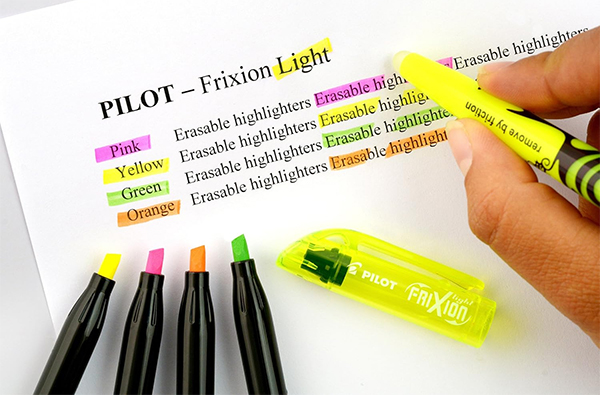 PILOT – Frixion Light
Pink Erasable highlighters Erasable highlighters Erasable highlighters
Yellow Erasable highlighters Erasable highlighters
Green Erasable highlighters Erasable highlighters
Orange Erasable highlighters Erasable highlighters
remove by friction
PILOT
FRIXION light